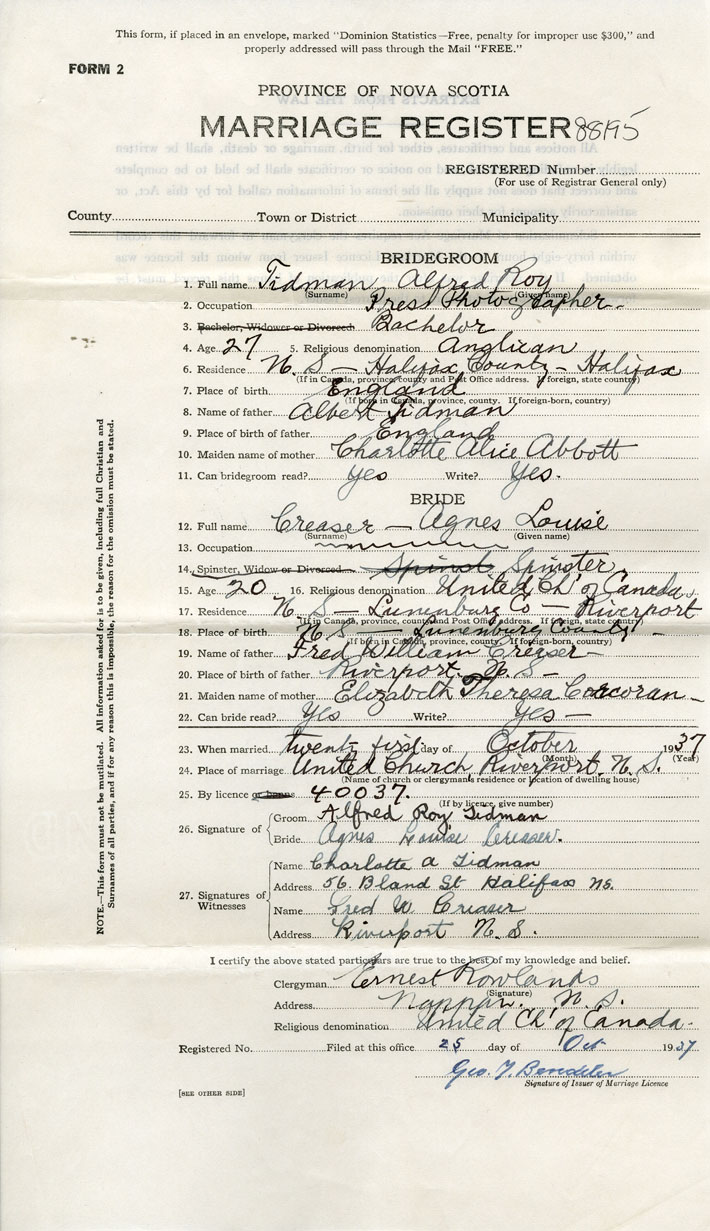 This form, if placed in an envelope, marked "Dominion Statistics—Free, penalty for improper use $300," and
properly addressed will pass through the Mail "FREE."
FORM 2
PROVINCE OF NOVA SCOTIA
MARRIAGE REGISTER 88195
REGISTERED Number
(For use of Registrar General only)
County Town or District Municipality
BRIDEGROOM
1. Full name Tidman Alfred Roy
(Surname) (Given name)
2. Occupation Press Photographer
3. Bachelor, Widower or Divorced Bachelor
4. Age 27 5. Religious denomination Anglican
6. Residence N. S — Halifax County — Halifax
(If in Canada, province, county and Post Office address. If foreign, state country)
7. Place of birth England
(If born in Canada, province, county. If foreign-born, country)
8. Name of father Albert Tidman
9. Place of birth of father England
10. Maiden name of mother Charlotte Alice Abbott
11. Can bridegroom read? Yes Write? Yes.
BRIDE
12. Full name Creaser — Agnes Louise
(Surname) (Given name)
13. Occupation
14. Spinster, Widow or Divorced Spinst Spinster
15. Age 20 16. Religious denomination United Ch' of Canada
17. Residence N S — Lunenburg Co — Riverport
(If in Canada, province, county and Post Office address. If foreign, state country)
18. Place of birth N S — Lunenburg County —
(If born in Canada, province, county. If foreign-born, country)
19. Name of father Fred William Creaser
20. Place of birth of father Riverport N. S —
21. Maiden name of mother Elizabeth Theresa Corcoran —
22. Can bride read? Yes Write? Yes —
23. When married twenty first day of October 1937
(Month) (Year)
24. Place of marriage United Church, Riverport. N. S.
(Name of church or clergyman's residence or location of dwelling house)
25. By licence or banns 40037.
(If by licence, give number)
26. Signature of
Groom Alfred Roy Tidman
Bride Agnes Louise Creaser.
27. Signatures of Witnesses
Name Charlotte A Tidman
Address 56 Bland St Halifax NS.
Name Fred W Creaser
Address Riverport N. S.
I certify the above stated particulars are true to the best of my knowledge and belief.
Clergyman Ernest Rowlands
(Signature)
Address Nappan. N. S.
Religious denomination United Ch' of Canada.
Registered No. Filed at this office 25 day of Oct 1937
Signature of Issuer of Marriage Licence
[SEE OTHER SIDE]
NOTE.—This form must not be mutilated. All information asked for is to be given, including full Christian and
Surnames of all parties, and if for any reason this is impossible, the reason for the omission must be stated.